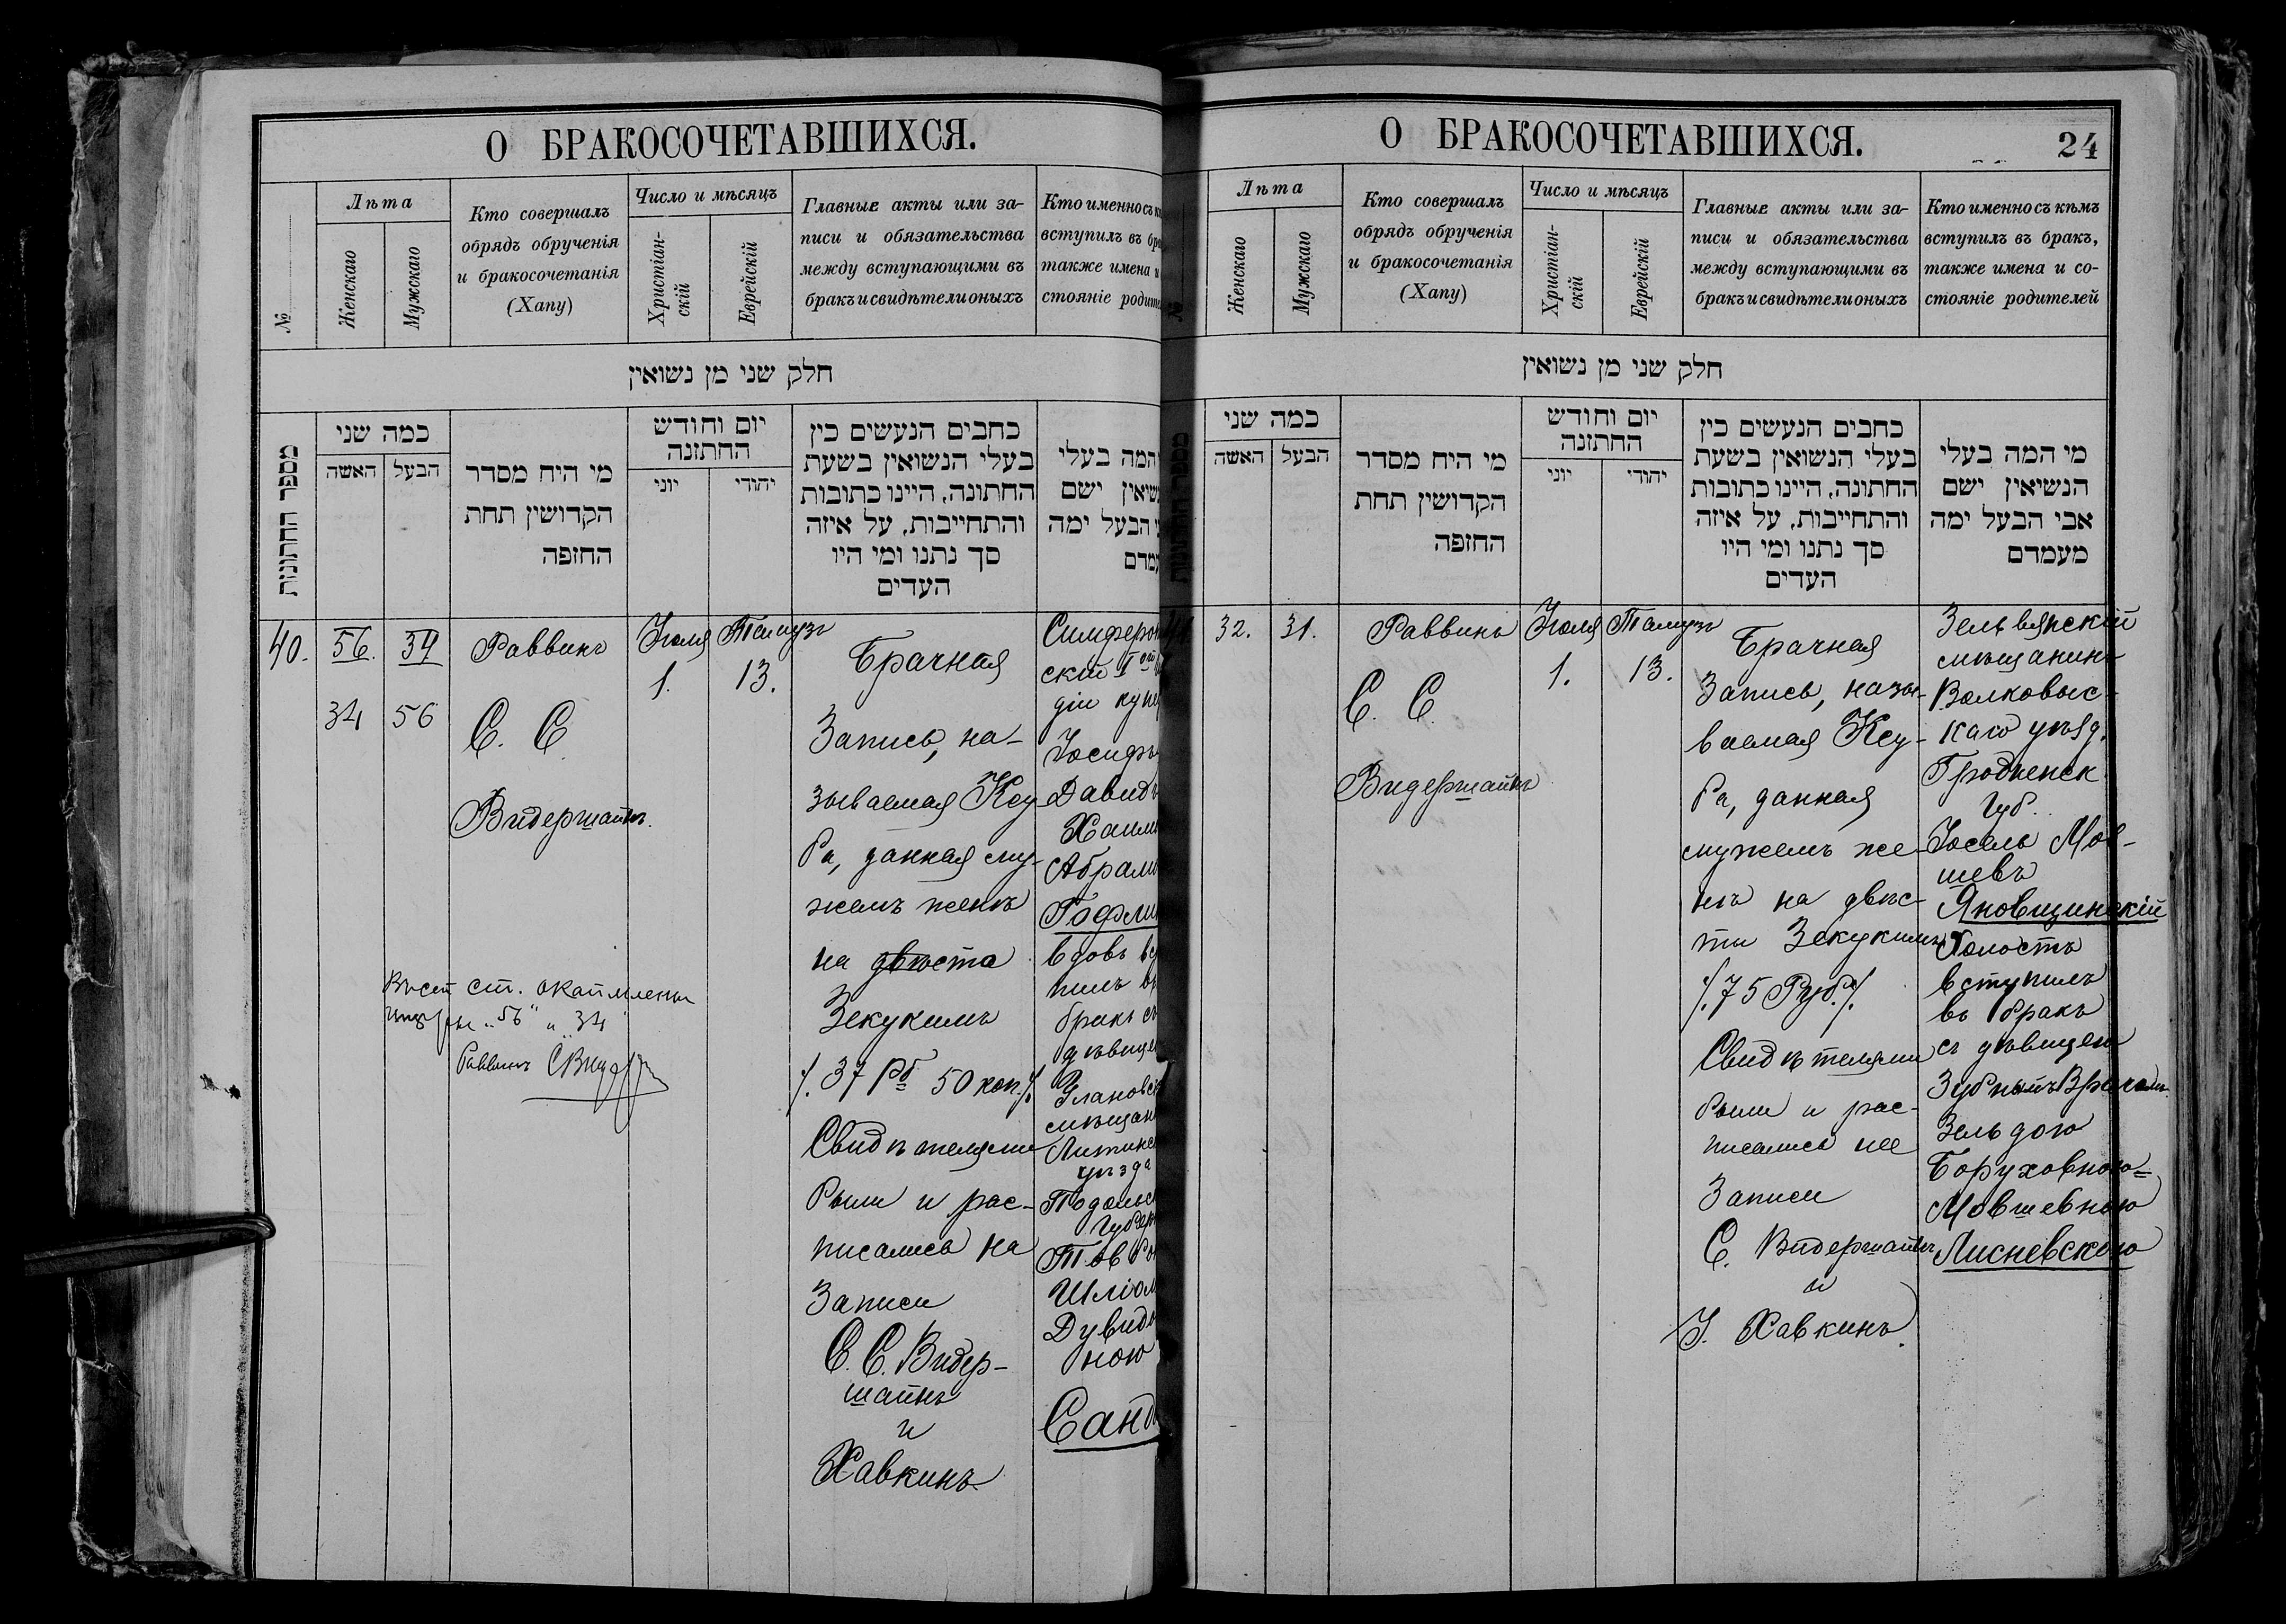 О БРАКОСОЧЕТАВШИХСЯ.
№
Лѣта
Женскаго
Мужскаго
Кто совершалъ
обрядъ обрученія
и бракосочетанія
(Хапу)
Число и мѣсяцъ
Христіан-
скій
Еврейскій
Главные акты или за-
писи и обязательства
между вступающими въ
бракъ и свидѣтели оныхъ
Кто именно съ
вступилъ въ
также имена и
стояніе
חלק שני מן נשואין
מספר החתונות
כמה שני
האשה
הבעל
מי היח מסדר
הקדושין תחת
החופה
יום וחודש
החתונה
יוני
יהודי
כחבים הנעשים כין
בעלי הנשואין בשעת
החתונה, היינו כתובות
והתחייבות, על איזה
סך נתנו ומי היו
העדים
המה בעלי
ישם
הבעל ימה
40.
56.
34
34
56
Раввинъ
С. С.
Видершайнъ.
Іюля
1.
Тамузъ
13.
Брачная
Запись, на-
зываемая Ксу
ба, данная му-
жемъ женѣ
на двѣста
Зекукимъ
/. 37 рб 50 коп./.
Свидѣтелями
были и рас-
писались на
Записи
С. С. Видер-
шайнъ
и
Хавкинъ.
скій
Іосифъ
Давидъ
вдовъ
бракъ
уѣзда
Дувидов
ною
ст.
"56" и 34
Раввинъ
О БРАКОСОЧЕТАВШИХСЯ.
24
Лѣта
Женскаго
Мужскаго
Кто совершалъ
обрядъ обрученія
и бракосочетанія
(Хапу)
Число и мѣсяцъ
Христіан-
скій
Еврейскій
Главные акты или за-
писи и обязательства
между вступающими въ
бракъ и свидѣтели оныхъ
Кто именно съ кѣмъ
вступилъ въ бракъ,
также имена и со-
стояніе родителей
חלק שני מן נשואין
כמה שני
האשה
הבעל
מי היח מסדר
הקדושין תחת
החופה
יום וחודש
החתונה
יוני
יהודי
כחבים הנעשים כין
בעלי הנשואין בשעת
החתונה, היינו כתובות
והתחייבות, על איזה
סך נתנו ומי היו
העדים
מי המה בעלי
הנשיאין ישם
אבי הבעל ימה
מעמדם
32.
31.
Раввинъ
С. С.
Видершайнъ
Іюля
1.
Тамузъ
13.
Брачная
Запись, назы-
ваемая Ксу-
ба, данная
мужемъ же-
нѣ на двѣс-
ти Зекукимъ
/. 75 Руб./.
Свидѣтелями
были и рас-
писались на
Записи
С. Видершайнъ
и
І. Хавкинъ.
Зельвянскій
мѣщанинъ
Волковыс-
каго уѣзд.
Гродненск.
Губ.
Іосель Мов-
шевъ
Яновщинскій
холостъ
вступилъ
въ бракъ
съ дѣвицею
Зубнымъ Врачомъ
Зельдою
Боруховною=
Мовшевною
Лисневскою